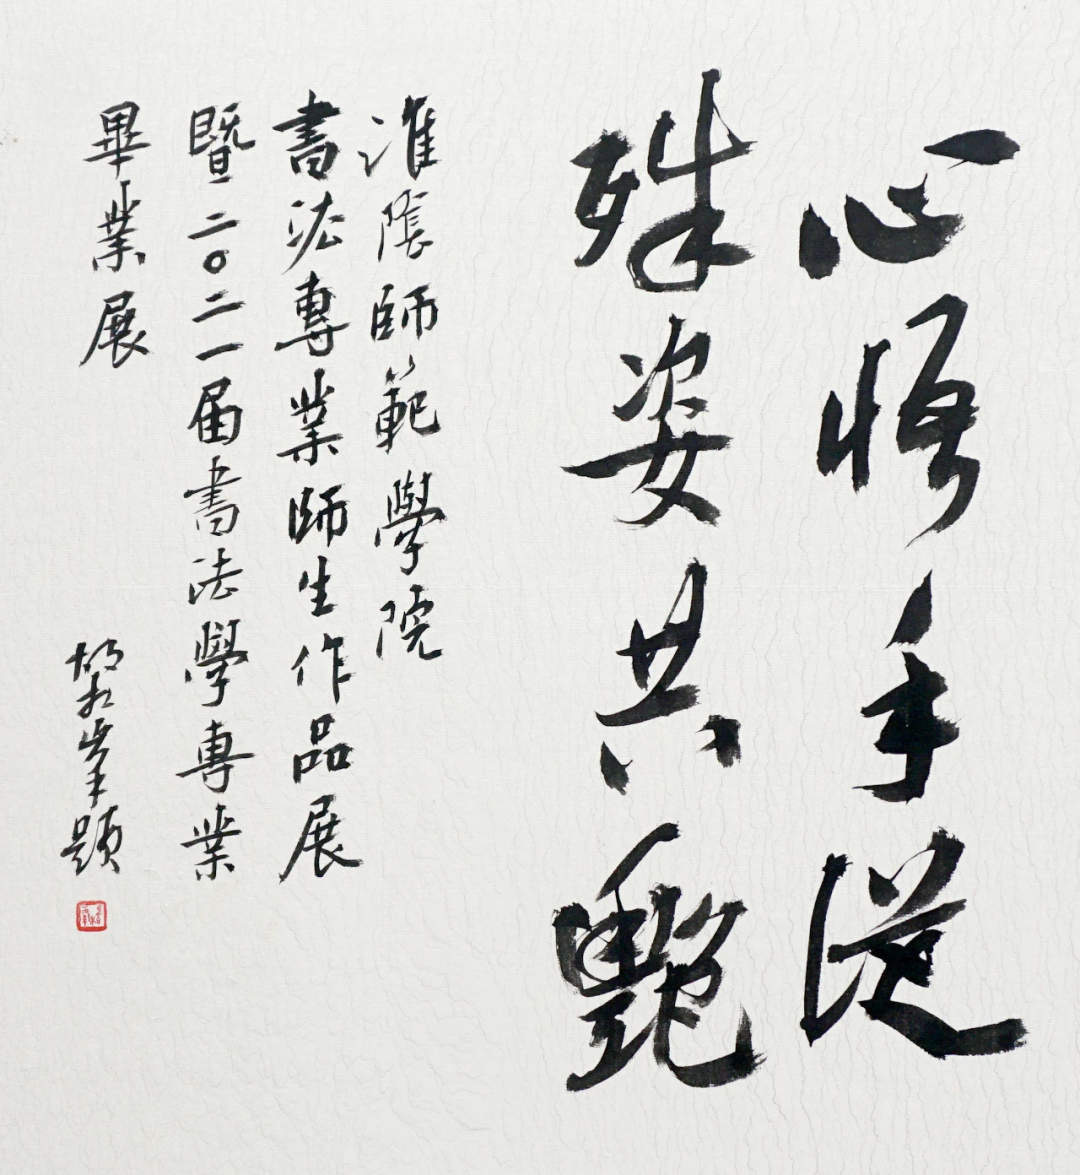 心悟手從
殊姿共艷
淮陰師範學院
書法專業師生作品展
暨二〇二一届書法學專業
畢業展
題